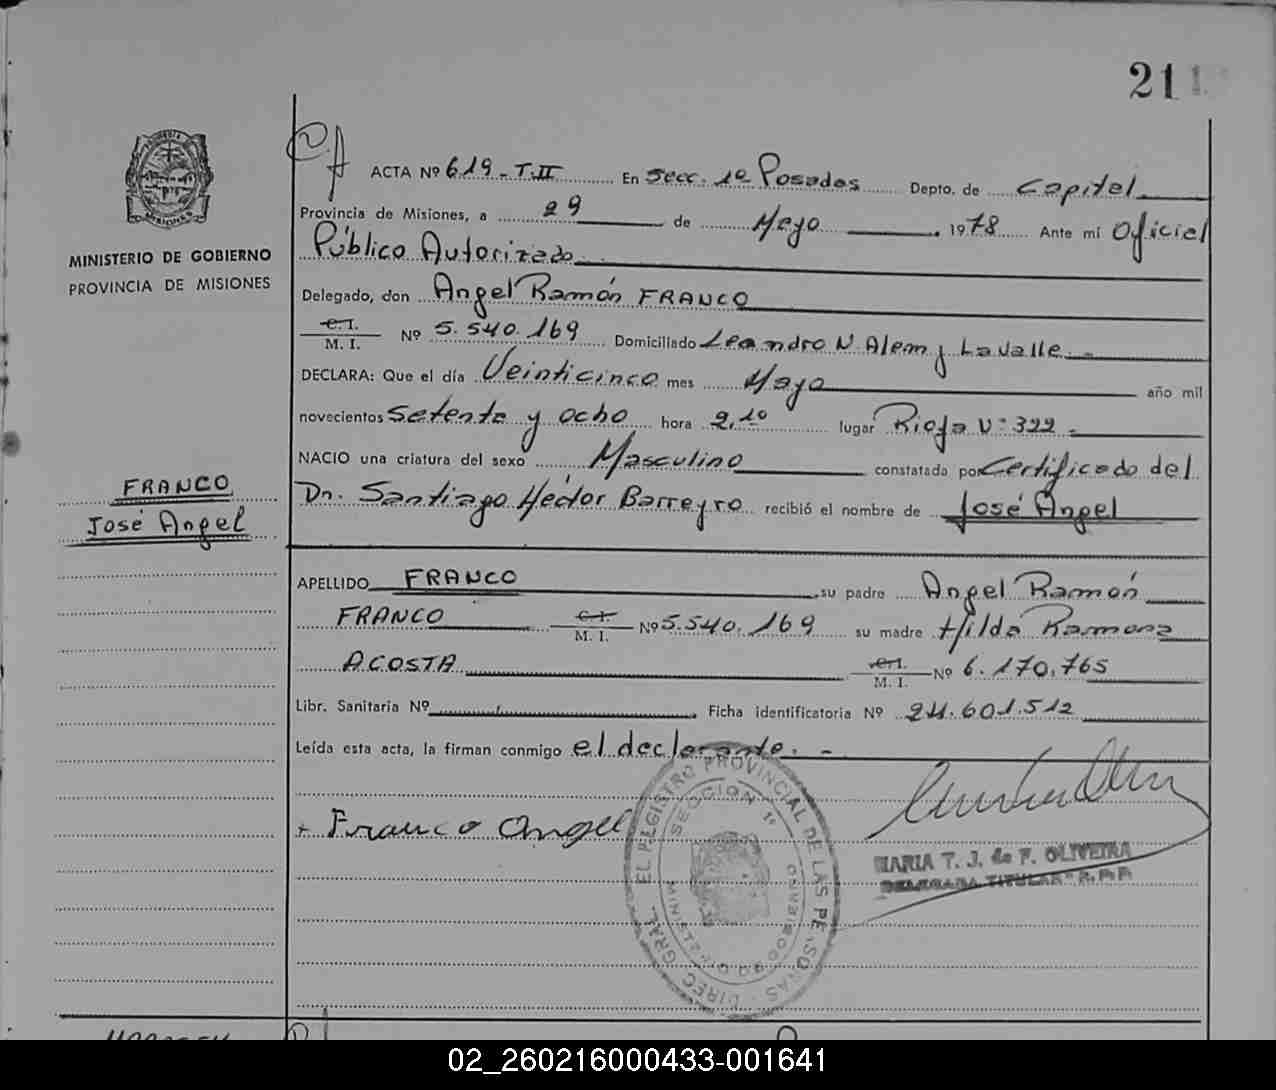 21
MINISTERIO DE GOBIERNO
PROVINCIA DE MISIONES
FRANCO
José Angel
ACTA Nº 619 - T. II En Secc. 1º Posadas Depto. de Capital
Provincia de Misiones, a 29 de Mayo 1978 Ante mí Oficial
Público Autorizado
Delegado, don Angel Ramón FRANCO
C. I. M. I. Nº 5.540.169 Domiciliado Leandro N. Alem y Lavalle. -
DECLARA: Que el día Veinticinco mes Mayo año mil
novecientos setenta y ocho hora 2,10 lugar Rioja Nº 322 -
NACIO una criatura del sexo Masculino constatada por Certificado del
Dr. Santiago Héctor Barreyro recibió el nombre de José Angel
APELLIDO FRANCO su padre Angel Ramón
FRANCO C. I. M. I. Nº 5.540.169 su madre Hilda Ramona
ACOSTA C. I. M. I. Nº 6.170.765
Libr. Sanitaria Nº Ficha identificatoria Nº 24.601.512
Leída esta acta, la firman conmigo el declarante. -
Franco Angel
MARIA T. J. de F. OLIVEIRA
DELEGADA TITULAR R. P. P.
DIREC. GRAL. EL REGISTRO PROVINCIAL DE LAS PERSONAS
SECCION 1º
MINISTERIO DE GOBIERNO
02_260216000433-001641